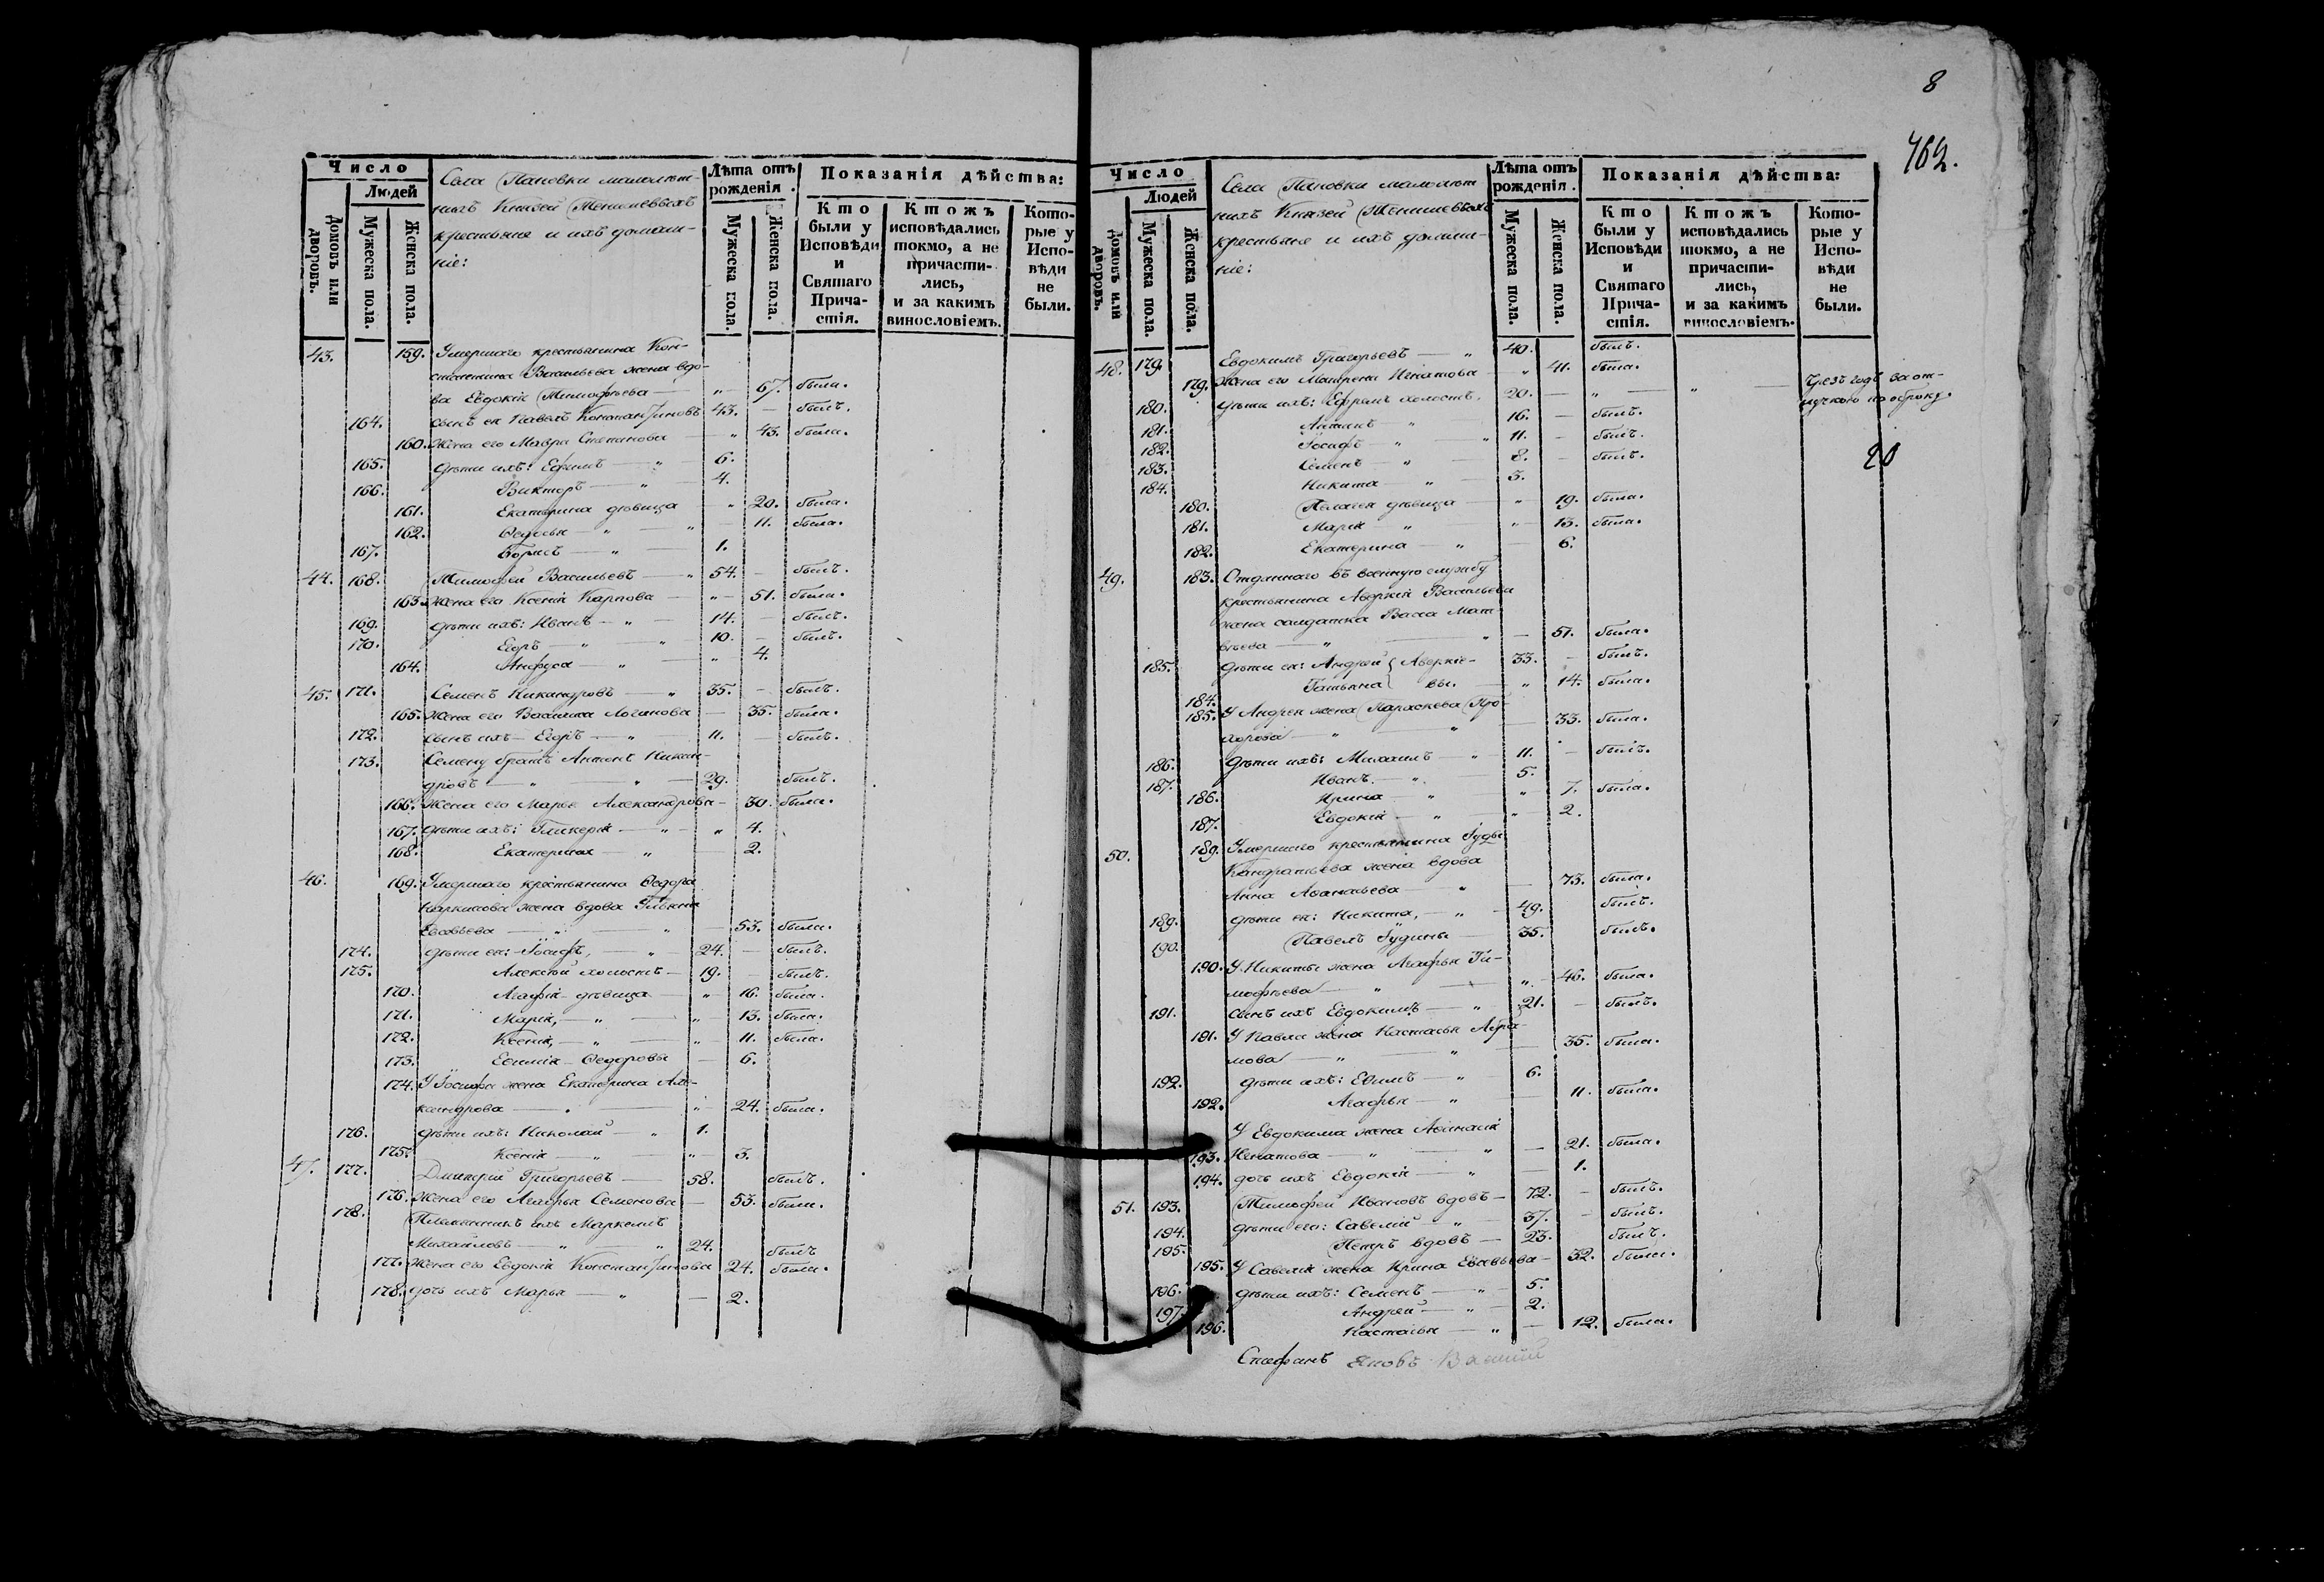 8
462.
Число
Людей
Домовъ или дворовъ.
Мужеска пола.
Женска пола.
Села Пановки малолѣт-
нихъ Князей Тенишевыхъ
крестьяне и ихъ домаш-
ніе:
Лѣта отъ рожденія.
Мужеска пола.
Женска пола.
Показанія дѣйства:
Кто были у Исповѣди и Святаго Причастія.
Ктожъ исповѣдались токмо, а не причасти-лись, и за какимъ винословіемъ.
Кото-рые у Испо-вѣди не были.
43. 159. Умершаго крестьянина Кон-
стантина Васильева жена вдо-
ва Евдокія Тимофѣева — „ 67. была.
164. сынъ ея Павелъ Константиновъ 43. — былъ.
160. Жена его Мавра Степанова — „ 43. была.
165. Дѣти ихъ: Ефимъ — „ — 6.
166. Викторъ — „ — 4.
161. Екатерина дѣвица — „ 20. была.
162. Ѳедосья — „ „ — 11. была.
167. Борисъ — „ — 1.
44. 168. Тимофей Васильевъ — „ 54. — былъ.
163. Жена его Ксенія Карпова — „ — 51. была.
169. Дѣти ихъ: Иванъ — „ — 14. — былъ.
170. Егоръ — „ „ 10. — былъ.
164. Анфуса — „ — „ 4.
45. 171. Семенъ Никандровъ — „ 35. — былъ.
165. Жена его Василиса Логинова — 35. была.
172. Сынъ ихъ — Егоръ — „ — 11. — былъ.
173. Семену братъ Антонъ Никан-
дровъ — „ „ — 29. былъ.
166. Жена его Марья Александрова — 30. была.
167. Дѣти ихъ: Гликерія — „ — „ 4.
168. Екатерина — „ — 2.
46. 169. Умершаго крестьянина Ѳедора
жена вдова
— „ „ — 53. была.
174. Дѣти ея: Іосифъ, — „ 24. — былъ.
175. Алексѣй холостъ — 19. — былъ.
170. Агафія — дѣвица — „ 16. была.
171. Марія, — „ — „ 13. была.
172. Ксенія, — „ — „ 11. была.
173. Евѳимія — Ѳедоровы — 6.
174. У Іосифа жена Екатерина Але-
ксандрова — „ — 24. была.
176. Дѣти ихъ: Николай — „ 1.
175. Ксенія — „ — „ 3.
47. 177. Дмитрій Григорьевъ — 58. былъ.
176. Жена его Агафья Семенова — 53. была.
178. Племянникъ ихъ Маркелъ
Михайловъ — „ „ 24. былъ
177. Жена его Евдокія Константинова 24. была.
178. дочь ихъ Марья — „ — 2.
Число
Людей
Домовъ или дворовъ.
Мужеска пола.
Женска пола.
Села Пановки малолѣт
нихъ Князей Тенишевыхъ
крестьяне и ихъ домаш-
ніе:
Лѣта отъ рожденія.
Мужеска пола.
Женска пола.
Показанія дѣйства:
Кто были у Исповѣди и Святаго Прича-стія.
Ктожъ исповѣдались токмо, а не причасти-лись, и за какимъ винословіемъ.
Кото-рые у Испо-вѣди не были.
48. 179. Евдокимъ Григорьевъ — „ 40. былъ.
179. Жена его Матрена Игнатова — „ 41. была.
180. Дѣти ихъ: Ефремъ холостъ, 20. — „ — „ — Чрезъ годъ за от-
лучкою по оброку.
181. Антипъ — „ 16. — былъ.
182. Іосифъ — „ „ 11. — былъ.
183. Семенъ — „ 8. — былъ.
184. Никита — „ — 3.
20
180. Пелагея дѣвица — „ 19. была.
181. Марія — „ „ — 13. была.
182. Екатерина — „ — 6.
49. 183. Отданнаго въ военную службу
крестьянина Аверкія Васильева
жена солдатка Васса Мат
вѣева — „ „ — 51. была.
185. Дѣти ея: Андрей Аверкіе- 33. — былъ.
184. Татьяна вы. — „ 14. была.
185. У Андрея жена Параскева Про-
хорова — „ „ — 33. была.
186. Дѣти ихъ: Михаилъ — „ 11. — былъ.
187. Иванъ — „ 5.
186. Ирина — „ „ 7. была.
187. Евдокія — „ „ 2.
50. 189. Умершаго крестьянина Іуды
Кондратьева жена вдова
Анна Аѳанасьева — „ — 73. была.
189. Дѣти ея: Никита, — „ — 49. былъ.
190. Павелъ Іудины — 35. былъ.
190. У Никиты жена Агафья Ти-
мофѣева — „ — „ — 46. была.
191. Сынъ ихъ Евдокимъ — „ 21. — былъ.
191. У Павла жена Настасья Абра-
мова — „ — „ — 35. была.
192. Дѣти ихъ: Еѳимъ — „ — 6.
192. Агафья — „ — 11. была.
У Евдокима жена Аѳинасія
193. Игнатова — „ „ — 21. была.
194. дочь ихъ Евдокія — „ — 1.
51. 193. Тимофей Ивановъ вдовъ — 72. — былъ.
194. Дѣти его: Савелій — „ 37. — былъ.
195. Петръ вдовъ — 23. былъ.
195. У Савелія жена Ирина — 32. была.
196. Дѣти ихъ: Семенъ — „ — 5.
197. Андрей — „ — 2.
196. Настасья — „ — 12. была.